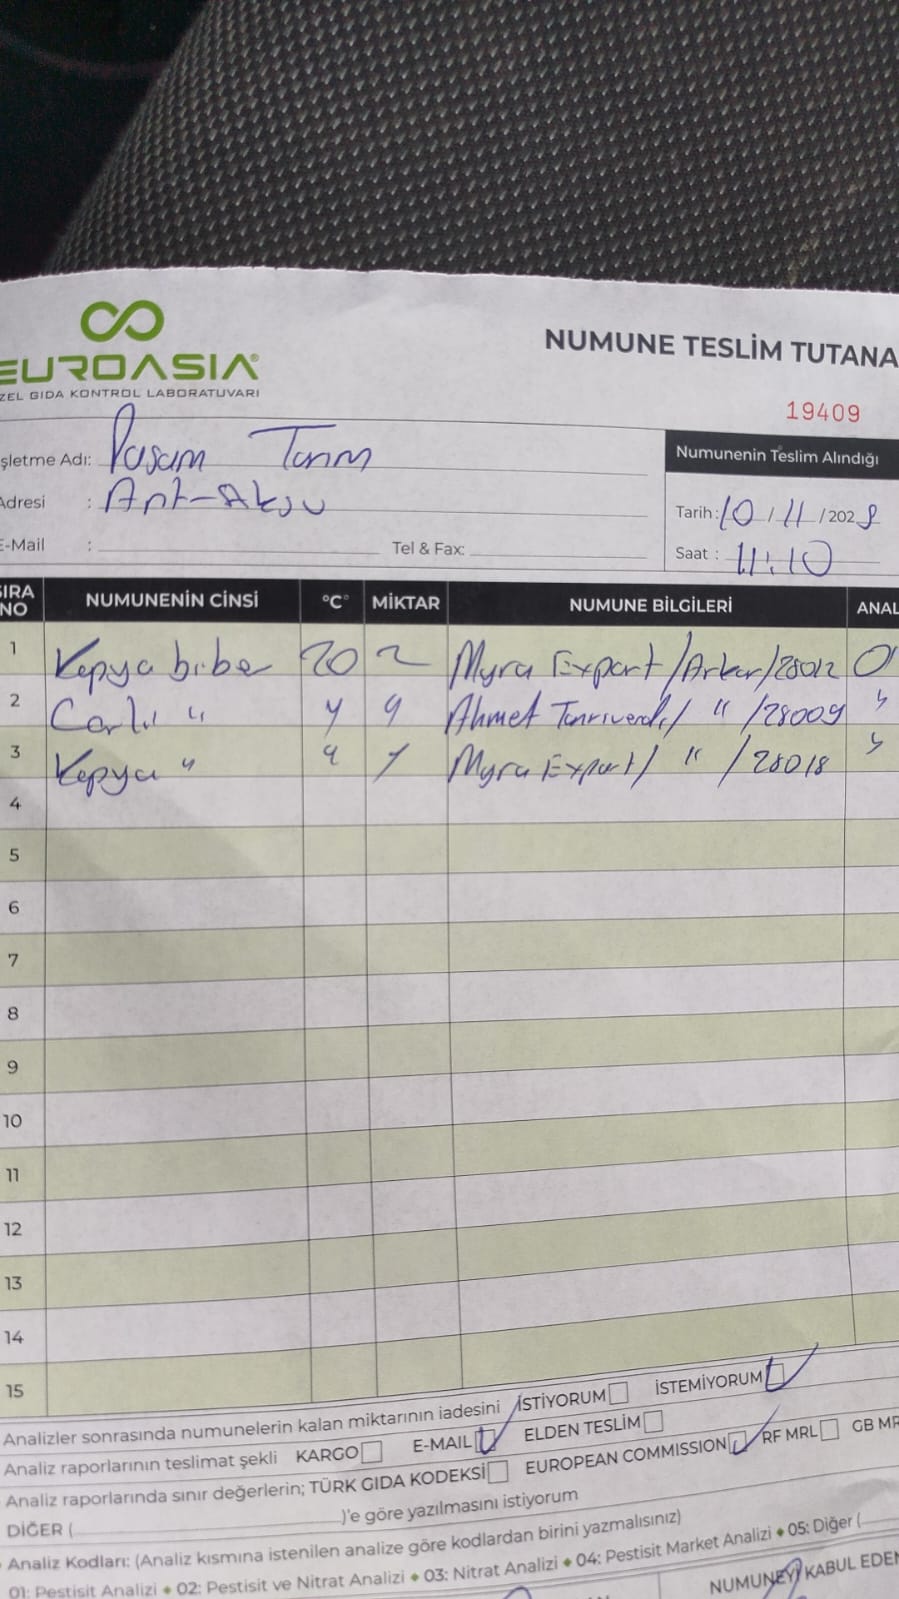 EUROASIA®
ZEL GIDA KONTROL LABORATUVARI
NUMUNE TESLİM TUTANA
19409
şletme Adı: Paşam Tarım
Adresi : Ant-Aksu
E-Mail :
Tel & Fax:
Numunenin Teslim Alındığı
Tarih: 10 / 11 / 202
Saat : 11:10
SIRA NO NUMUNENİN CİNSİ °C MİKTAR NUMUNE BİLGİLERİ ANAL
1 Kapya biber 20 2 Myra Export / / 28012 01
2 " Ahmet Tanrıverdi / " / 28009 "
3 Kapya " " 1 Myra Export / " / 28018 "
4
5
6
7
8
9
10
11
12
13
14
15
Analizler sonrasında numunelerin kalan miktarının iadesini İSTİYORUM İSTEMİYORUM
Analiz raporlarının teslimat şekli KARGO E-MAIL ELDEN TESLİM
Analiz raporlarında sınır değerlerin; TÜRK GIDA KODEKSİ EUROPEAN COMMISSION RF MRL GB MR
DİĞER ( )'e göre yazılmasını istiyorum
Analiz Kodları: (Analiz kısmına istenilen analize göre kodlardan birini yazmalısınız)
01: Pestisit Analizi ♦ 02: Pestisit ve Nitrat Analizi ♦ 03: Nitrat Analizi ♦ 04: Pestisit Market Analizi ♦ 05: Diğer (
NUMUNEYİ KABUL EDEN